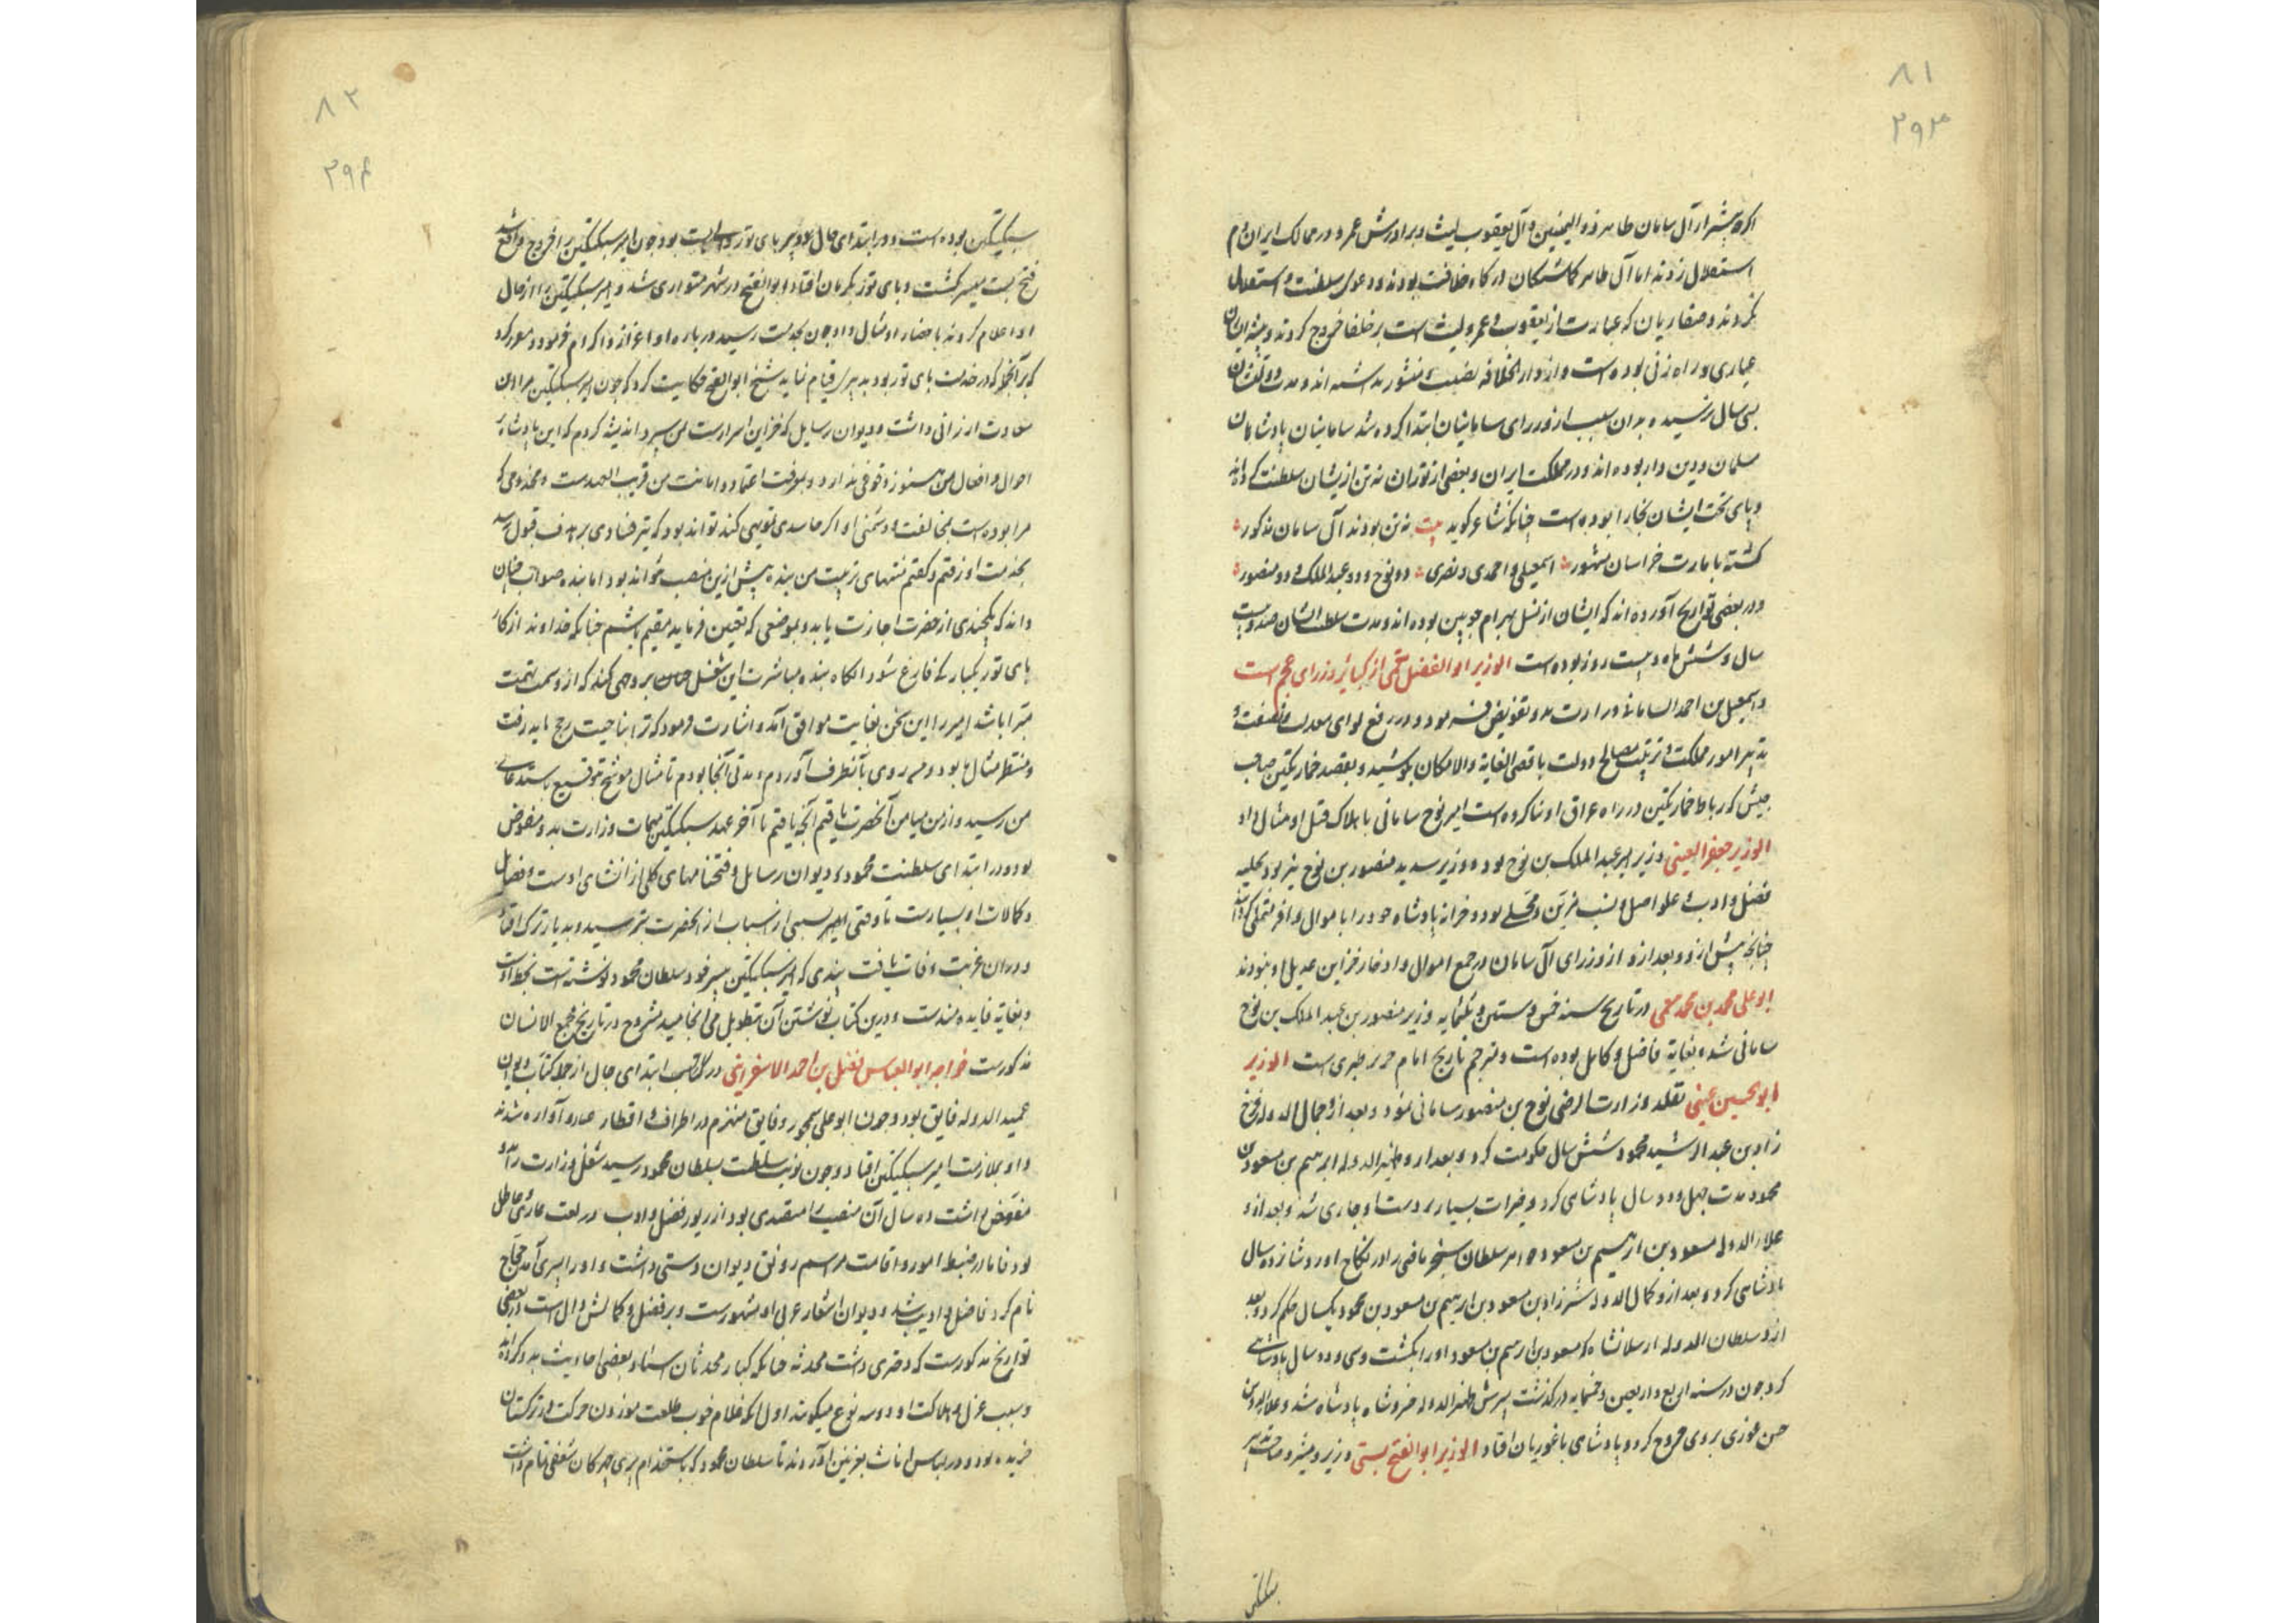 ۸۱
۲۹۳
اگرچه پیشتر از آل سامان طاهر ذو الیمینین و آل یعقوب لیث و برادرش عمرو در ممالک ایران دم
استقلال زدند اما آل طاهر کماشتکان درکاه خلافت بودند و دعوی سلطنت و استقلال
نکردند و صفاریان که عبارت از یعقوب و عمرو لیث است بر خلفا خروج کردند و پیشه ایشان
عیاری و راه زنی بوده است و از دار الخلافه بمنشور نداشته اند و مدت دولتشان
بسی سال نرسیده بدان سبب از وزرای سامانیان ابتدا کرده شد سامانیان پادشاهان
مسلمان و دین دار بوده اند و در مملکت ایران و بعضی از توران نه تن ازیشان سلطنت کرده اند
و پای تخت ایشان بخارا بوده است چنانکه شاعر کوید بیت نه تن بودند آل سامان مذکور
کشته بامارت خراسان مشهور اسمعیلی و احمدی و نصری دو نوح و دو عبد الملک و دو منصور
و در بعضی تواریخ آورده اند که ایشان از نسل بهرام چوبین بوده اند و مدت سلطنت ایشان صد و بیست
سال و شش ماه و بیست روز بوده است الوزیر ابو الفضل بلعمی از کبایر وزرای عجم است
و اسمعیل بن احمد السامانی وزارت بدو تفویض فرموده بود و در رفع لوای معدلت و نصفت و
تدبیر امور مملکت و ترتیب مصالح دولت باقصی الغایه و الامکان بکوشید و بقصد خمارتکین صاحب
جیش که رباط خمارتکین در راه عراق او بنا کرده است امیر نوح سامانی باهلاک و قتل او مثال داد
الوزیر جعفر العینی وزیر امیر عبد الملک بن نوح بوده و وزیر سدید منصور بن نوح نیز بود بحلیه
فضل و ادب و علو اصل و نسب مزین و محلی بود و خزانه پادشاه خود را باموال وافر ممتلی کردانید
چنانچه پیش ازو و بعد ازو از وزرای آل سامان در جمع اموال و ادخار خزاین عدیل او نبودند
ابو علی محمد بن محمد بلعمی در تاریخ سنه خمس و ستین و ثلثمایه وزیر منصور بن عبد الملک بن نوح
سامانی شد و بغایة فاضل و کامل بوده است و مترجم تاریخ امام جریر طبری است الوزیر
ابو الحسین عتبی تقلد وزارت الرضی نوح بن منصور سامانی نمود و بعد ازو جمال الدوله فرخ
زاد بن عبد الرشید محمود شش سال حکومت کرد و بعد ازو ظهیر الدوله ابرهیم بن مسعود بن
محمود مدت چهل و دو سال پادشاهی کرد و خیرات بسیار بر دست او جاری شد و بعد ازو
علاء الدوله مسعود بن ابرهیم بن مسعود خواهر سلطان سنجر ماضی را در نکاح آورد و شانزده سال
پادشاهی کرد و بعد ازو کمال الدوله شیرزاد بن مسعود بن ابرهیم بن مسعود بن محمود یکسال حکم کرد و بعد
ازو سلطان الدوله ارسلانشاه بن مسعود بن ابرهیم بن مسعود او را بکشت و سی و دو سال پادشاهی
کرد چون در سنه اربع و اربعین و خمسمایه درکذشت پسرش ظهیر الدوله خسروشاه پادشاه شد و علاء الدین
حسن غوری بر وی خروج کرد و پادشاهی باغوریان افتاد الوزیر ابو الفتح بستی وزیر و مشیر و صاحب تدبیر
سبکتکین
۸۲
۲۹۴
سبکتکین بوده است و در ابتدای حال دبیر بای توز والی بست بود و چون امیر سبکتکین را خروج واقع شد
فتح بست میسر کشت و بای توز بکرمان افتاد و ابو الفتح در شهر متواری شد و امیر سبکتکین را از حال
او اعلام کردند باحضار او مثال داد چون بخدمت رسید در باره او اعزاز و اکرام فرمود و مقرر کرد
که بر آنچه که در خدمت بای توز بود بدبیری قیام نماید شیخ ابو الفتح حکایت کرد که چون امیر سبکتکین مرا این
سعادت ارزانی داشت و دیوان رسایل که خزاین اسرارست بمن سپرد اندیشه کردم که این پادشاه بر
احوال و افعال من هنوز وقوفی ندارد و بمعرفت اعتماد و امانت من قریب العهدست و مخدومی که
مرا بوده است بمخالفت و دشمنی او اکر حاسدی تمویهی کند تواند بود که تیر فسادی بر هدف قبول رسد
بخدمت او رفتم و کفتم منتهای تربیت من بنده بیش ازین منصب نتواند بود اما بنده صواب چنان
داند که یکچندی از حضرت اجازت یابد و بموضعی که تعیین فرماید مقیم باشم چنانکه خداوند از کار
بای توز یکبارکی فارغ شود انکاه بنده مباشرت این شغل چنان بر وجهی کند که از وصمت تهمت
مبرا باشد امیر را این سخن بغایت موافق آمد و اشارت فرمود که ترا بناحیت رخج باید رفت
و منتظر مثال ما بود و من روی بآنطرف آوردم و مدتی آنجا بودم تا مثال موشح بتوقیع باستدعای
من رسید و از من میامن آنحضرت یافتم آنچه یافتم تا آخر عهد سبکتکین مهمات وزارت بدو مفوض
بود و در ابتدای سلطنت محمود دیوان رسایل و فتحنامهای کلی از انشای اوست و فضایل
و کمالات او بسیارست تا وقتی بسببی از اسباب از آنحضرت بترسید و بدیار ترک افتاد
و در ان غربت وفات یافت پندی که امیر سبکتکین پسر خود سلطان محمود نوشته است بخط اوست
و بغایة فایده مندست و درین کتاب نوشتن آن بتطویل می انجامید مشروح در تاریخ مجمع الانساب
مذکورست خواجه ابو العباس فضل بن احمد الاسفراینی در ابتدای حال از جمله کتاب دیوان
عمید الدوله فایق بود و چون ابو علی سیمجور و فایق منهزم در اطراف و اقطار عالم آواره شدند
و او بملازمت امیر سبکتکین افتاد و چون نوبت سلطنت بسلطان محمود رسید شغل وزارت را بدو
مفوض داشت ده سال آن منصب را متصدی بود از زیور فضل و ادب و لغت تازی عاطل
بود فاما در ضبط امور و اقامت مراسم رونق دیوان دستی داشت و او را پسری آمد حجاج
نام کرد فاضل و ادیب شد و دیوان اشعار عربی او مشهورست و بر فضل و کمالش دال است و در بعضی
تواریخ مذکورست که دختری داشت محدثه چنانکه کبار محدثان اسناد بعضی احادیث بدو کرده اند
و سبب عزل و هلاکت او دو سه نوع میکویند اول انکه غلام خوب طلعت موزون حرکت در ترکستان
خریده بود و در لباس اناث بغزنین آوردند تا سلطان محمود که باستخدام پری چهرکان شغفی تمام داشت